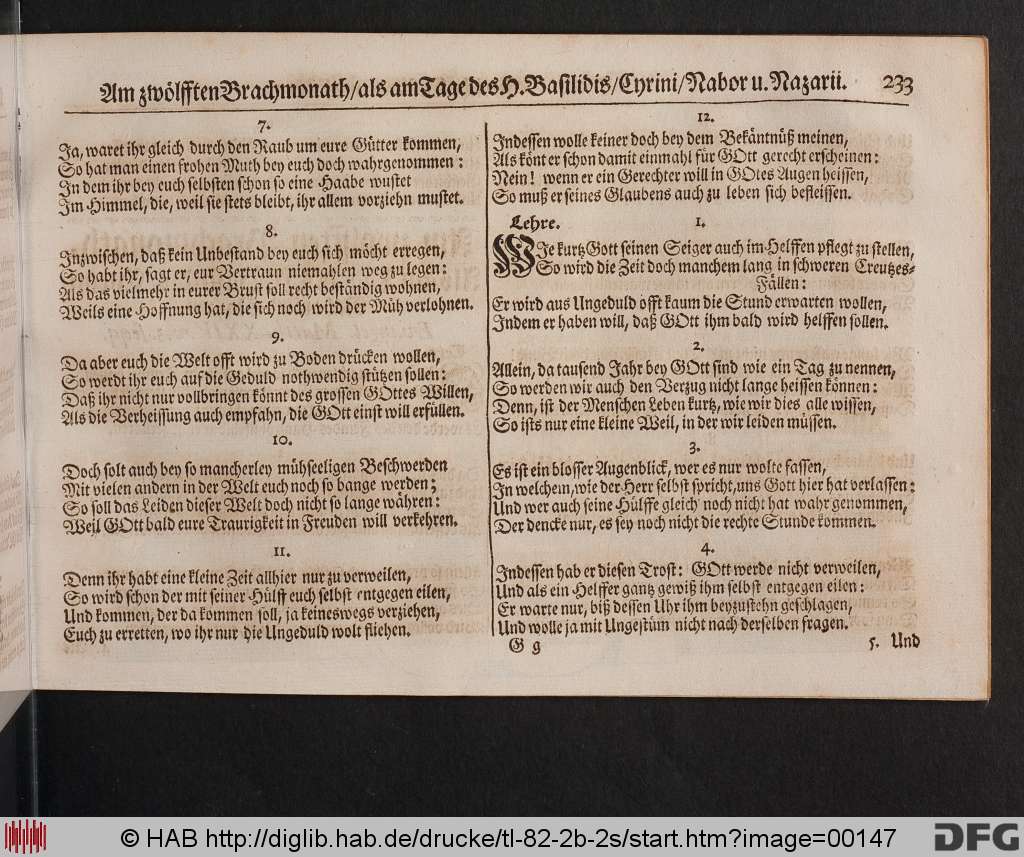 Am zwölfften Brachmonath/als am Tage des H. Basilidis/Cyrini/Nabor u. Nazarii. 233
7.
Ja, waret ihr gleich durch den Raub um eure Gütter kommen,
So hat man einen frohen Muth bey euch doch wahrgenommen:
In dem ihr bey euch selbsten schon so eine Haabe wustet
Im Himmel, die, weil sie stets bleibt, ihr allem vorziehn mustet.
8.
Inzwischen, daß kein Unbestand bey euch sich möcht erregen,
So habt ihr, sagt er, eur Vertraun niemahlen weg zu legen:
Als das vielmehr in eurer Brust soll recht beständig wohnen,
Weils eine Hoffnung hat, die sich noch wird der Müh verlohnen.
9.
Da aber euch die Welt offt wird zu Boden drücken wollen,
So werdt ihr euch auf die Geduld nothwendig stützen sollen:
Daß ihr nicht nur vollbringen könnt des grossen GOttes Willen,
Als die Verheissung auch empfahn, die GOtt einst will erfüllen.
10.
Doch solt auch bey so mancherley mühseeligen Beschwerden
Mit vielen andern in der Welt euch noch so bange werden;
So soll das Leiden dieser Welt doch nicht so lange währen:
Weil GOtt bald eure Traurigkeit in Freuden will verkehren.
11.
Denn ihr habt eine kleine Zeit allhier nur zu verweilen,
So wird schon der mit seiner Hülff euch selbst entgegen eilen,
Und kommen, der da kommen soll, ja keineswegs verziehen,
Euch zu erretten, wo ihr nur die Ungeduld wolt fliehen.
12.
Indessen wolle keiner doch bey dem Bekäntnüß meinen,
Als könt er schon damit einmahl für GOtt gerecht erscheinen:
Nein! wenn er ein Gerechter will in GOtes Augen heissen,
So muß er seines Glaubens auch zu leben sich befleissen.
Lehre. 1.
WIe kurtz Gott seinen Seiger auch im Helffen pflegt zu stellen,
So wird die Zeit doch manchem lang in schweren Creutzes-
Fällen:
Er wird aus Ungeduld offt kaum die Stund erwarten wollen,
Indem er haben will, daß GOtt ihm bald wird helffen sollen.
2.
Allein, da tausend Jahr bey GOtt sind wie ein Tag zu nennen,
So werden wir auch den Verzug nicht lange heissen können:
Denn, ist der Menschen Leben kurtz, wie wir dies alle wissen,
So ists nur eine kleine Weil, in der wir leiden müssen.
3.
Es ist ein blosser Augenblick, wer es nur wolte fassen,
In welchem, wie der Herr selbst spricht, uns Gott hier hat verlassen:
Und wer auch seine Hülffe gleich noch nicht hat wahr genommen,
Der dencke nur, es sey noch nicht die rechte Stunde kommen.
4.
Indessen hab er diesen Trost: GOtt werde nicht verweilen,
Und als ein Helffer gantz gewiß ihm selbst entgegen eilen:
Er warte nur, biß dessen Uhr ihm beyzustehn geschlagen,
Und wolle ja mit Ungestüm nicht nach derselben fragen.
G g 5. Und
© HAB http://diglib.hab.de/drucke/tl-82-2b-2s/start.htm?image=00147
DFG